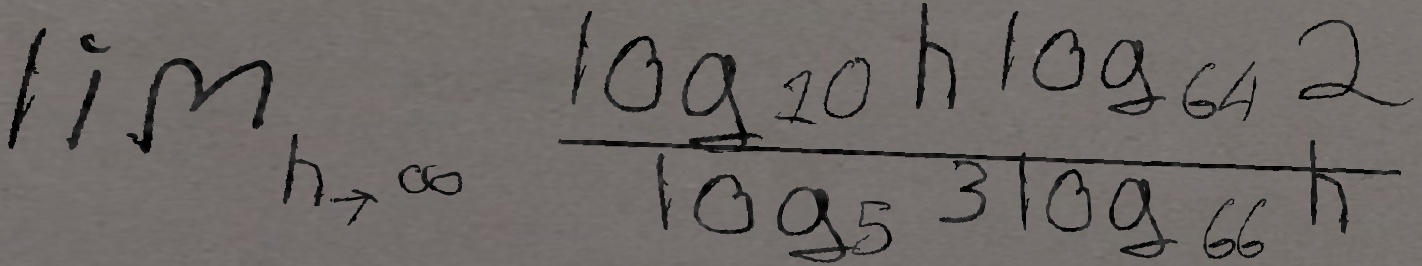 lim h→∞ log₁₀ h log₆₄ 2
log₅ 3 log₆₆ h